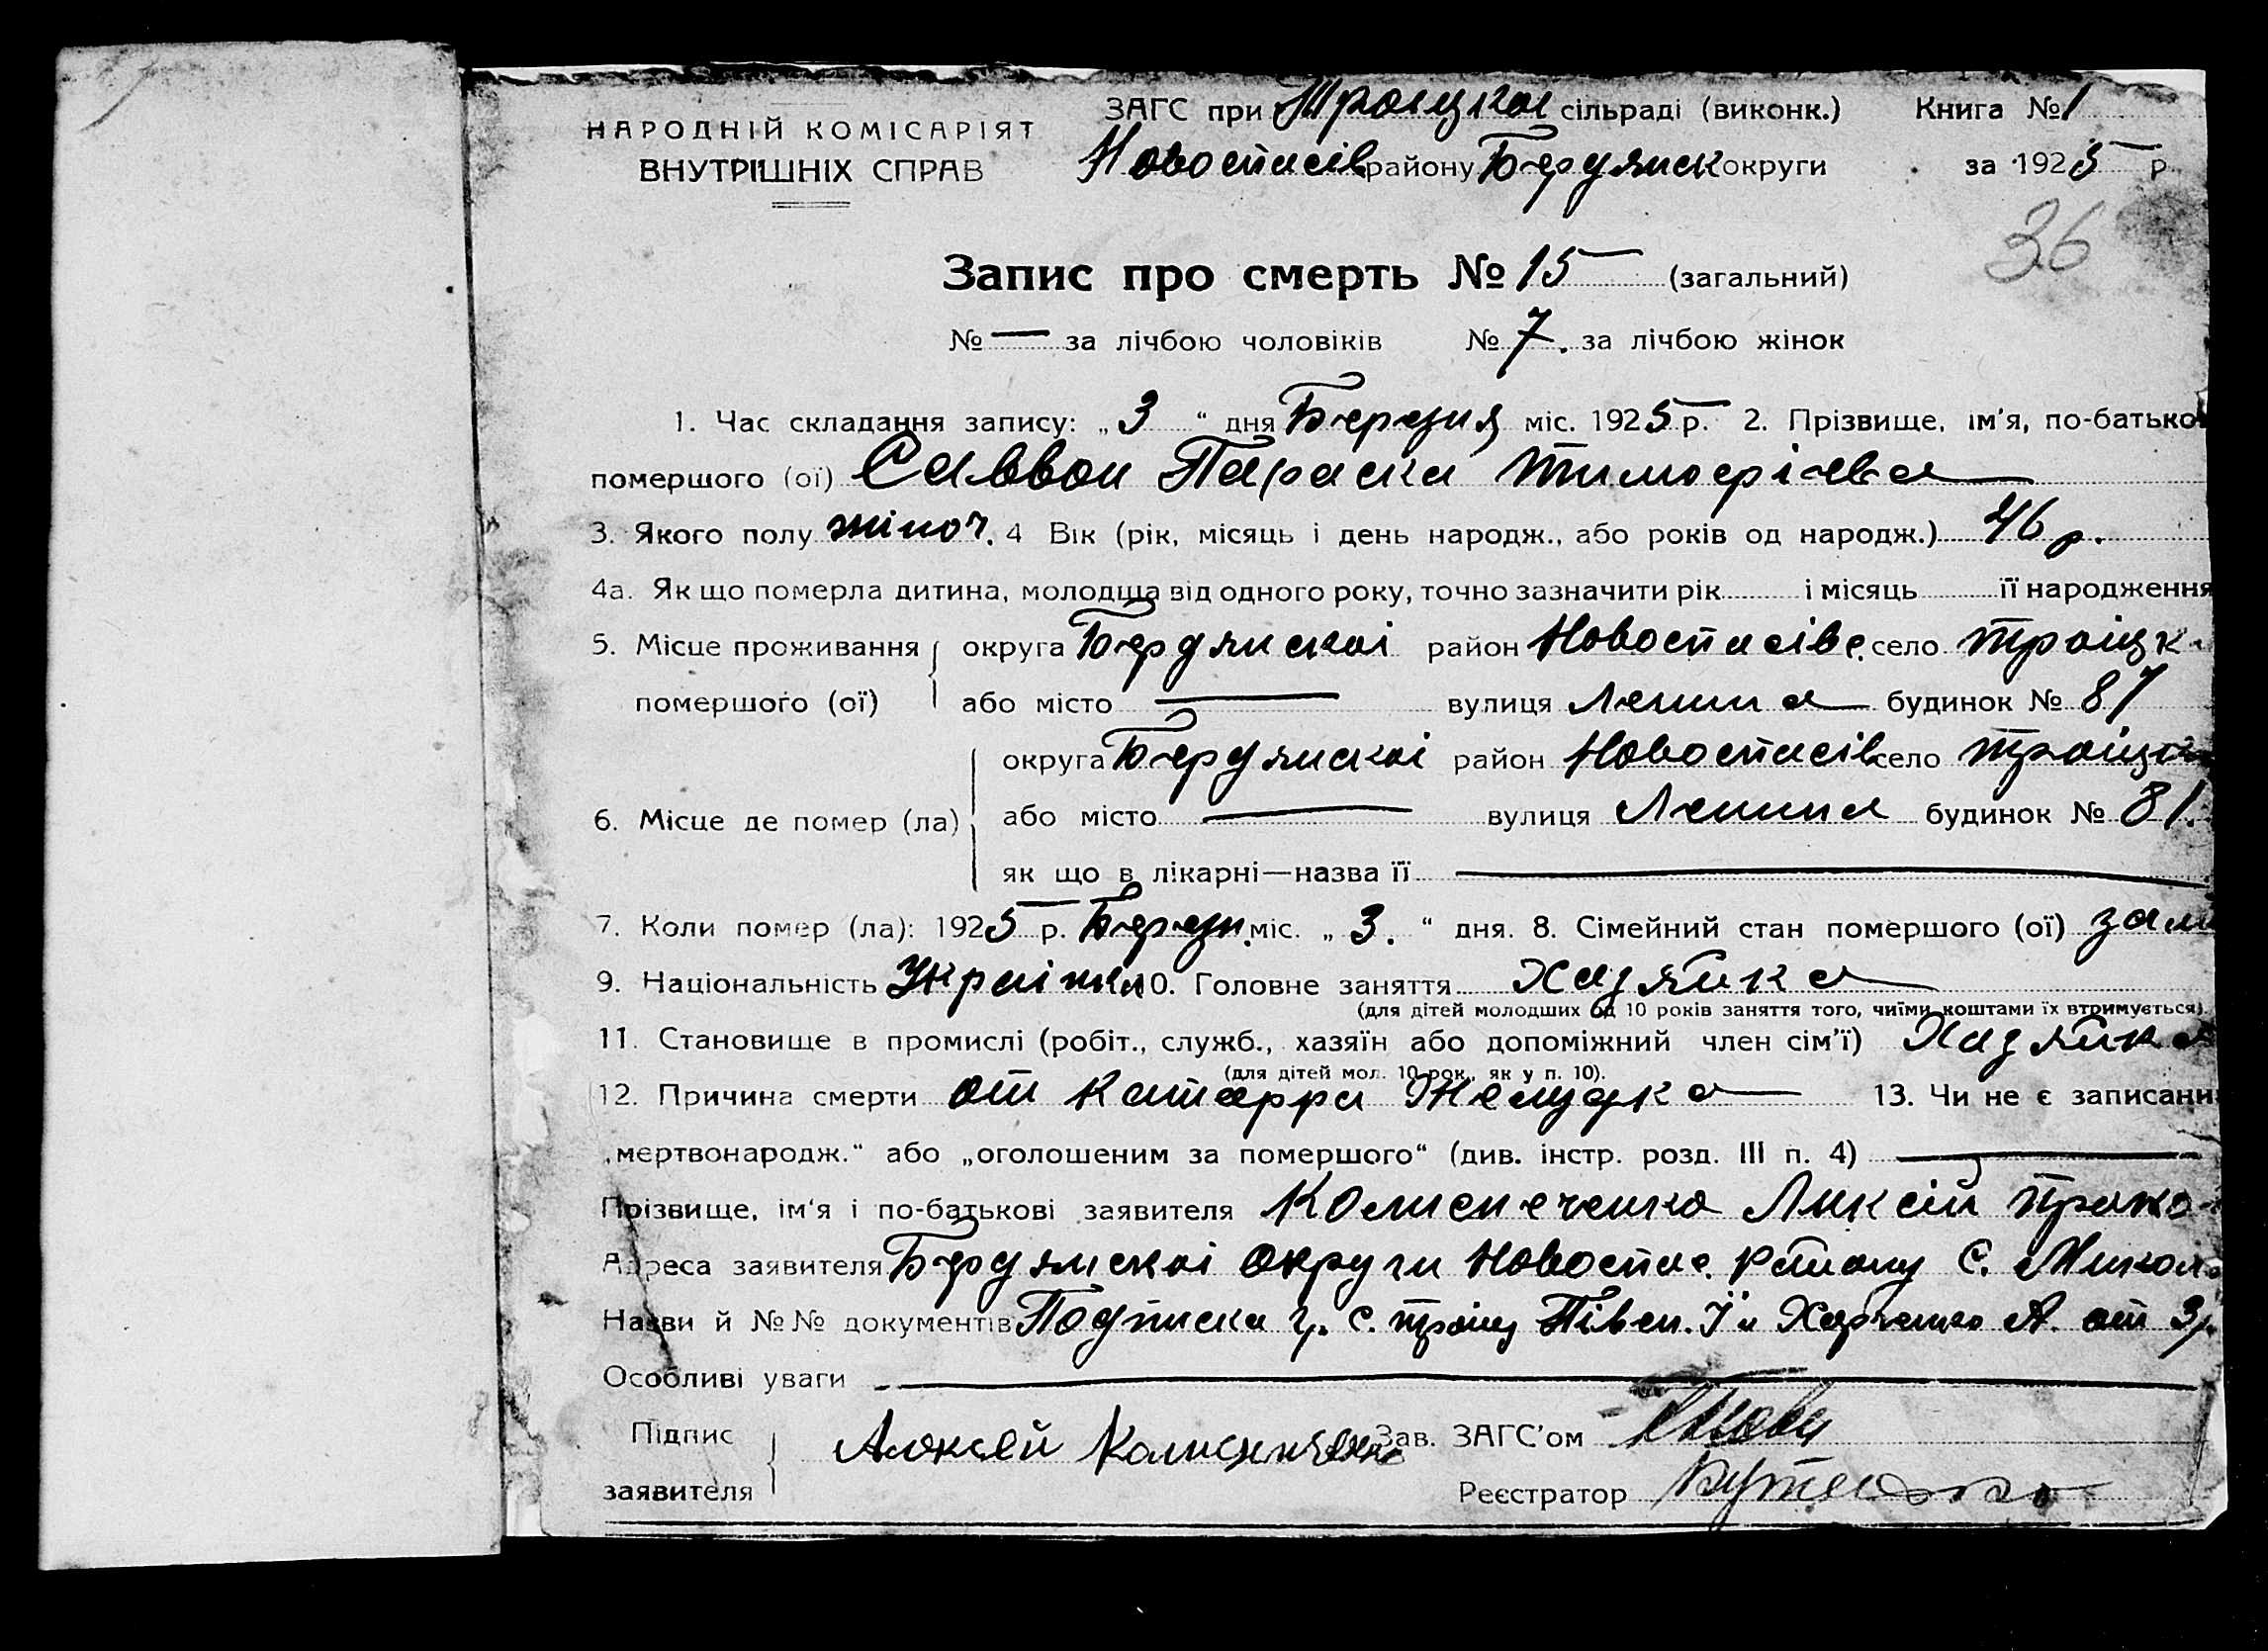 НАРОДНІЙ КОМІСАРІЯТ
ВНУТРІШНІХ СПРАВ
ЗАГС при Троицкои сільраді (виконк.) Книга № 1
Новоспасів району Бердянск округи за 1925 р.
36
Запис про смерть № 15 (загальний)
№ — за лічбою чоловіків № 7. за лічбою жінок
1. Час складання запису: „3“ дня Березня міс. 1925 р. 2. Прізвище, ім'я, по-батькові
помершого (ої) Саввон Параска Тимофіева
3. Якого полу жіноч. 4 Вік (рік, місяць і день народж., або років од народж.) 46 р.
4а. Як що померла дитина, молодша від одного року, точно зазначити рік і місяць її народження
5. Місце проживання округа Бердянскоі район Новоспасівс. село Троіцк.
помершого (ої) або місто — вулиця Ленина будинок № 87
округа Бердянскоі район Новоспасів село Троіцк
6. Місце де помер (ла) або місто — вулиця Ленина будинок № 81.
як що в лікарні—назва її —
7. Коли помер (ла): 1925 р. Березн. міс. „3.“ дня. 8. Сімейний стан помершого (ої) зам
9. Національність Украінка 10. Головне заняття Хазяйка
(для дітей молодших од 10 років заняття того, чиїми коштами їх втримується).
11. Становище в промислі (робіт., служб., хазяїн або допоміжний член сім'ї) Хазяйка
(для дітей мол. 10 рок., як у п. 10).
12. Причина смерти от катарра Желудка 13. Чи не є записани
„мертвонародж.“ або „оголошеним за помершого“ (див. інстр. розд. III п. 4) —
Прізвище, ім'я і по-батькові заявителя Колисниченко Ликсій
Адреса заявителя Бердянскоі округи Новоспас. району С. Микола
Назви й №№ документів Подписка гр. с. Троіц Півен. І и Харченко А. от 3/
Особливі уваги —
Підпис
заявителя
Алоксей Колисниченко
Зав. ЗАГС'ом
Реєстратор